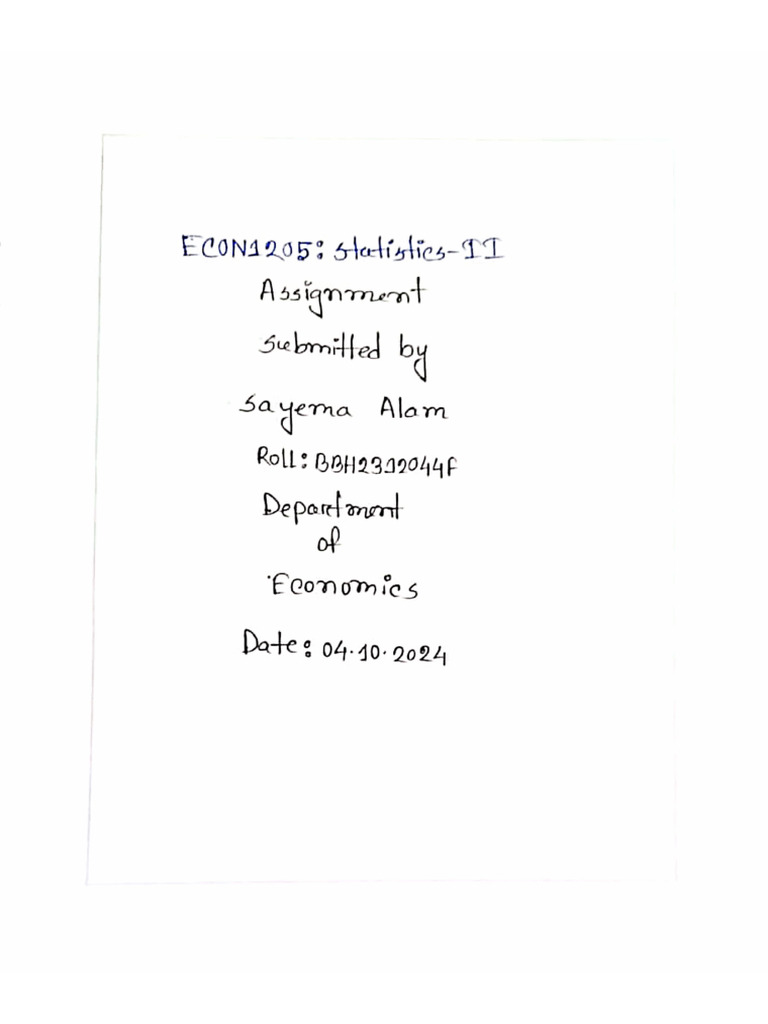 ECON1205: Statistics-II
Assignment
Submitted by
Sayema Alam
Roll: BBH2312044F
Department
of
Economics
Date: 04.10.2024